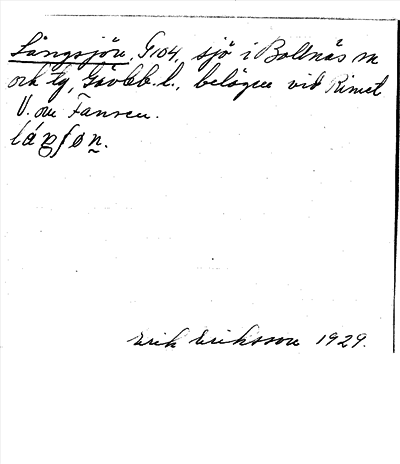 Långsjön, G104, sjö i Bollnäs sn
och tg, Gävleb. l., belägen vid Rimet
V. om Fansen.
Erik Eriksson 1929.